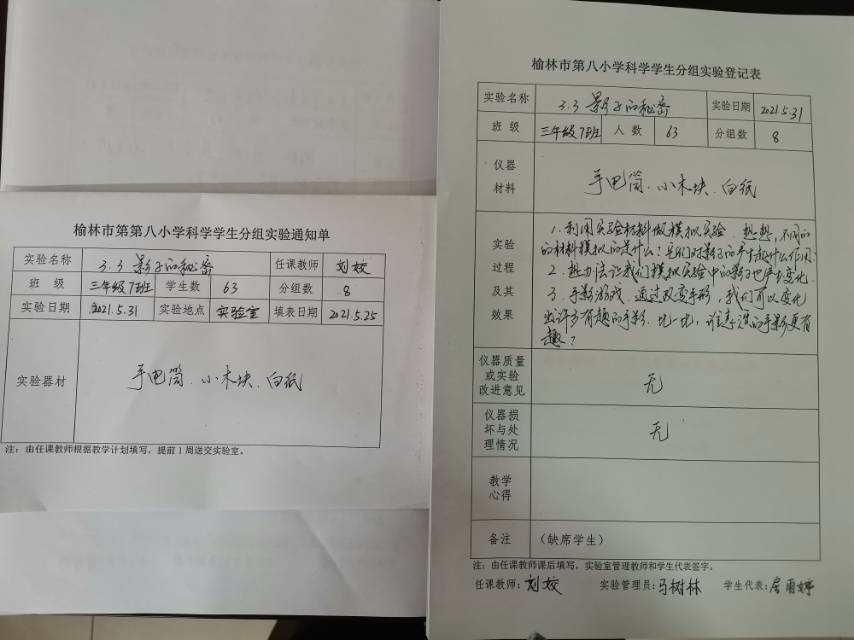 榆林市第第八小学科学学生分组实验通知单
实验名称 3.3 影子的秘密 任课教师 刘姣
班 级 三年级7班 学生数 63 分组数 8
实验日期 2021.5.31 实验地点 实验室 填表日期 2021.5.25
实验器材 手电筒、小木块、白纸
注：由任课教师根据教学计划填写，提前1周送交实验室。
榆林市第八小学科学学生分组实验登记表
实验名称 3.3 影子的秘密 实验日期 2021.5.31
班 级 三年级7班 人 数 63 分组数 8
仪器
材料
手电筒、小木块、白纸
实验
过程
及其
效果
1.利用实验材料做模拟实验，想想，不同的
的材料模拟的是什么？它们对影子的产生起什么作用？
2.想办法让我们模拟实验中的影子也产生变化
3.手影游戏，通过改变手形，我们可以变化
出许多有趣的手影，比一比，谁表演的手影更有
趣？
仪器质量
或实验
改进意见
无
仪器损
坏与处
理情况
无
教学
心得
备注 （缺席学生）
注：由任课教师课后填写，实验室管理教师和学生代表签字。
任课教师：刘姣 实验管理员：马树林 学生代表：雨婷